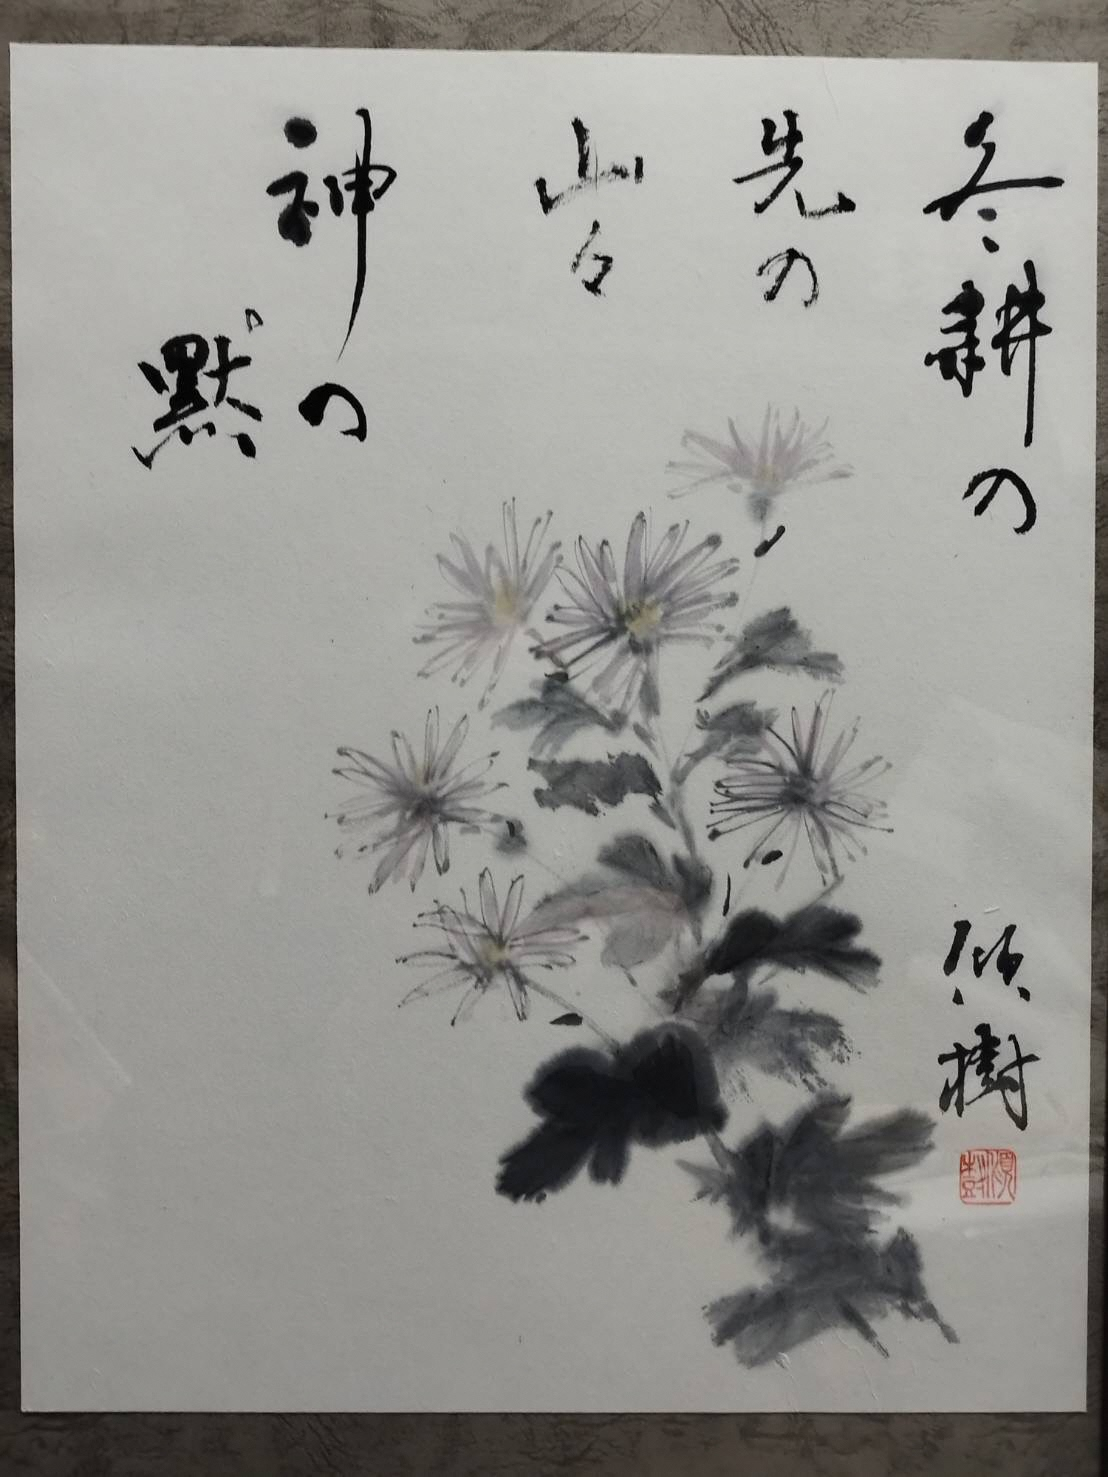 冬耕の
先の
山々
神の
黙
傾樹